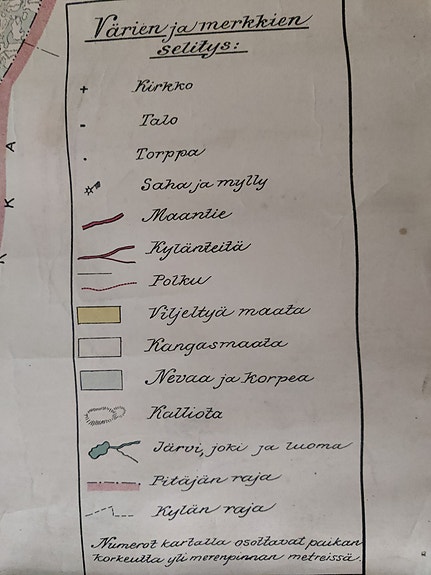 Värien ja merkkien
selitys:
Kirkko
Talo
Torppa
Saha ja mylly
Maantie
Kylänteitä
Polku
Viljeltyä maata
Kangasmaata
Nevaa ja korpea
Kalliota
Järvi, joki ja luoma
Pitäjän raja
Kylän raja
Numerot kartalla osottavat paikan
korkeutta yli merenpinnan metreissä.
A
K
K